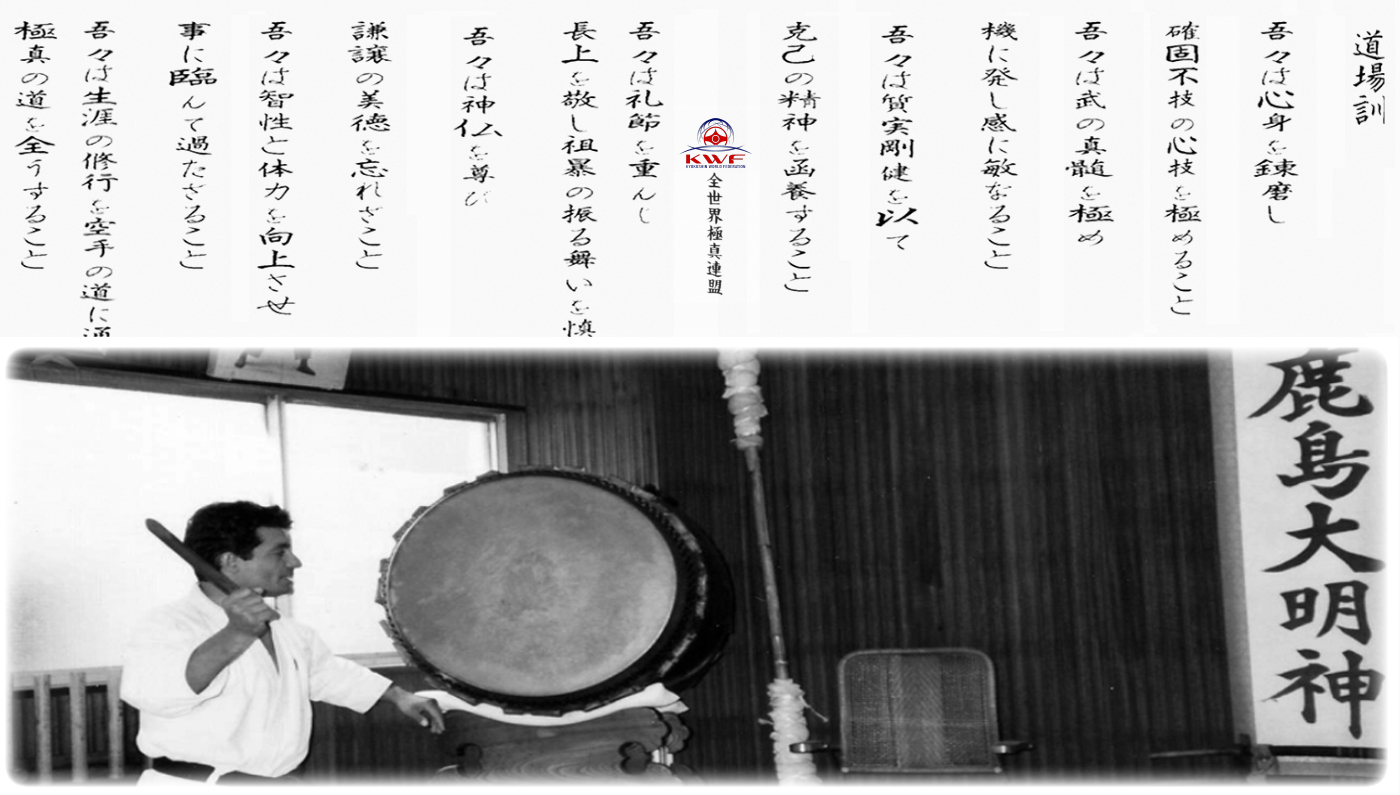 道場訓
吾々は心身を錬磨し
確固不技の心技を極めること
吾々は武の真髄を極め
機に発し感に敏なること
吾々は質実剛健を以て
克己の精神を函養すること
KWF
KYOKUSHIN WORLD FEDERATION
全世界極真連盟
吾々は礼節を重んじ
長上を敬し祖暴の振る舞いを慎
吾々は神仏を尊び
謙譲の美徳を忘れざこと
吾々は智性と体力を向上させ
事に臨んて過たざること
吾々は生涯の修行を空手の道に通
極真の道を全うすること
鹿島大明神